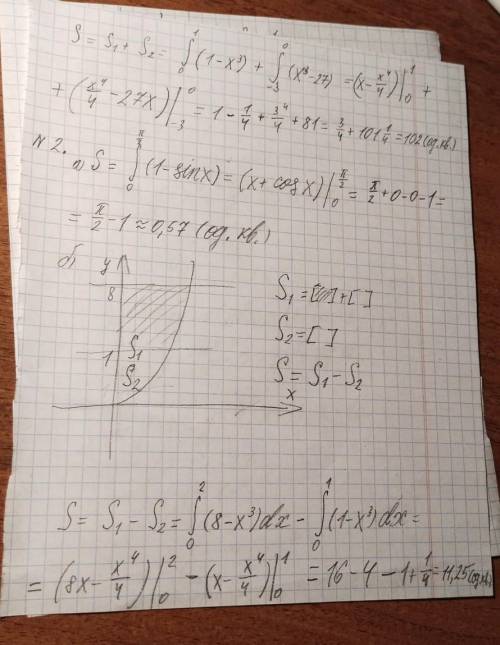 S = S₁ + S₂ = ∫₀¹ (1-x³) + ∫₋₃⁰ (x³-27) = (x - x⁴/4)|₀¹ +
+ (x⁴/4 - 27x)|₋₃⁰ = 1 - 1/4 + 3⁴/4 + 81 = 3/4 + 101 1/4 = 102 (ед. кв.)
N 2.
а) S = ∫₀^(π/2) (1 - sinx) = (x + cosx)|₀^(π/2) = π/2 + 0 - 0 - 1 =
= π/2 - 1 ≈ 0,57 (ед. кв.)
б) y
8
S₁ = [ ] + [ ]
1 S₁
S₂ = [ ]
S₂
S = S₁ - S₂
x
S = S₁ - S₂ = ∫₀² (8-x³)dx - ∫₀¹ (1-x³)dx =
= (8x - x⁴/4)|₀² - (x - x⁴/4)|₀¹ = 16 - 4 - 1 + 1/4 = 11,25 (ед. кв.)